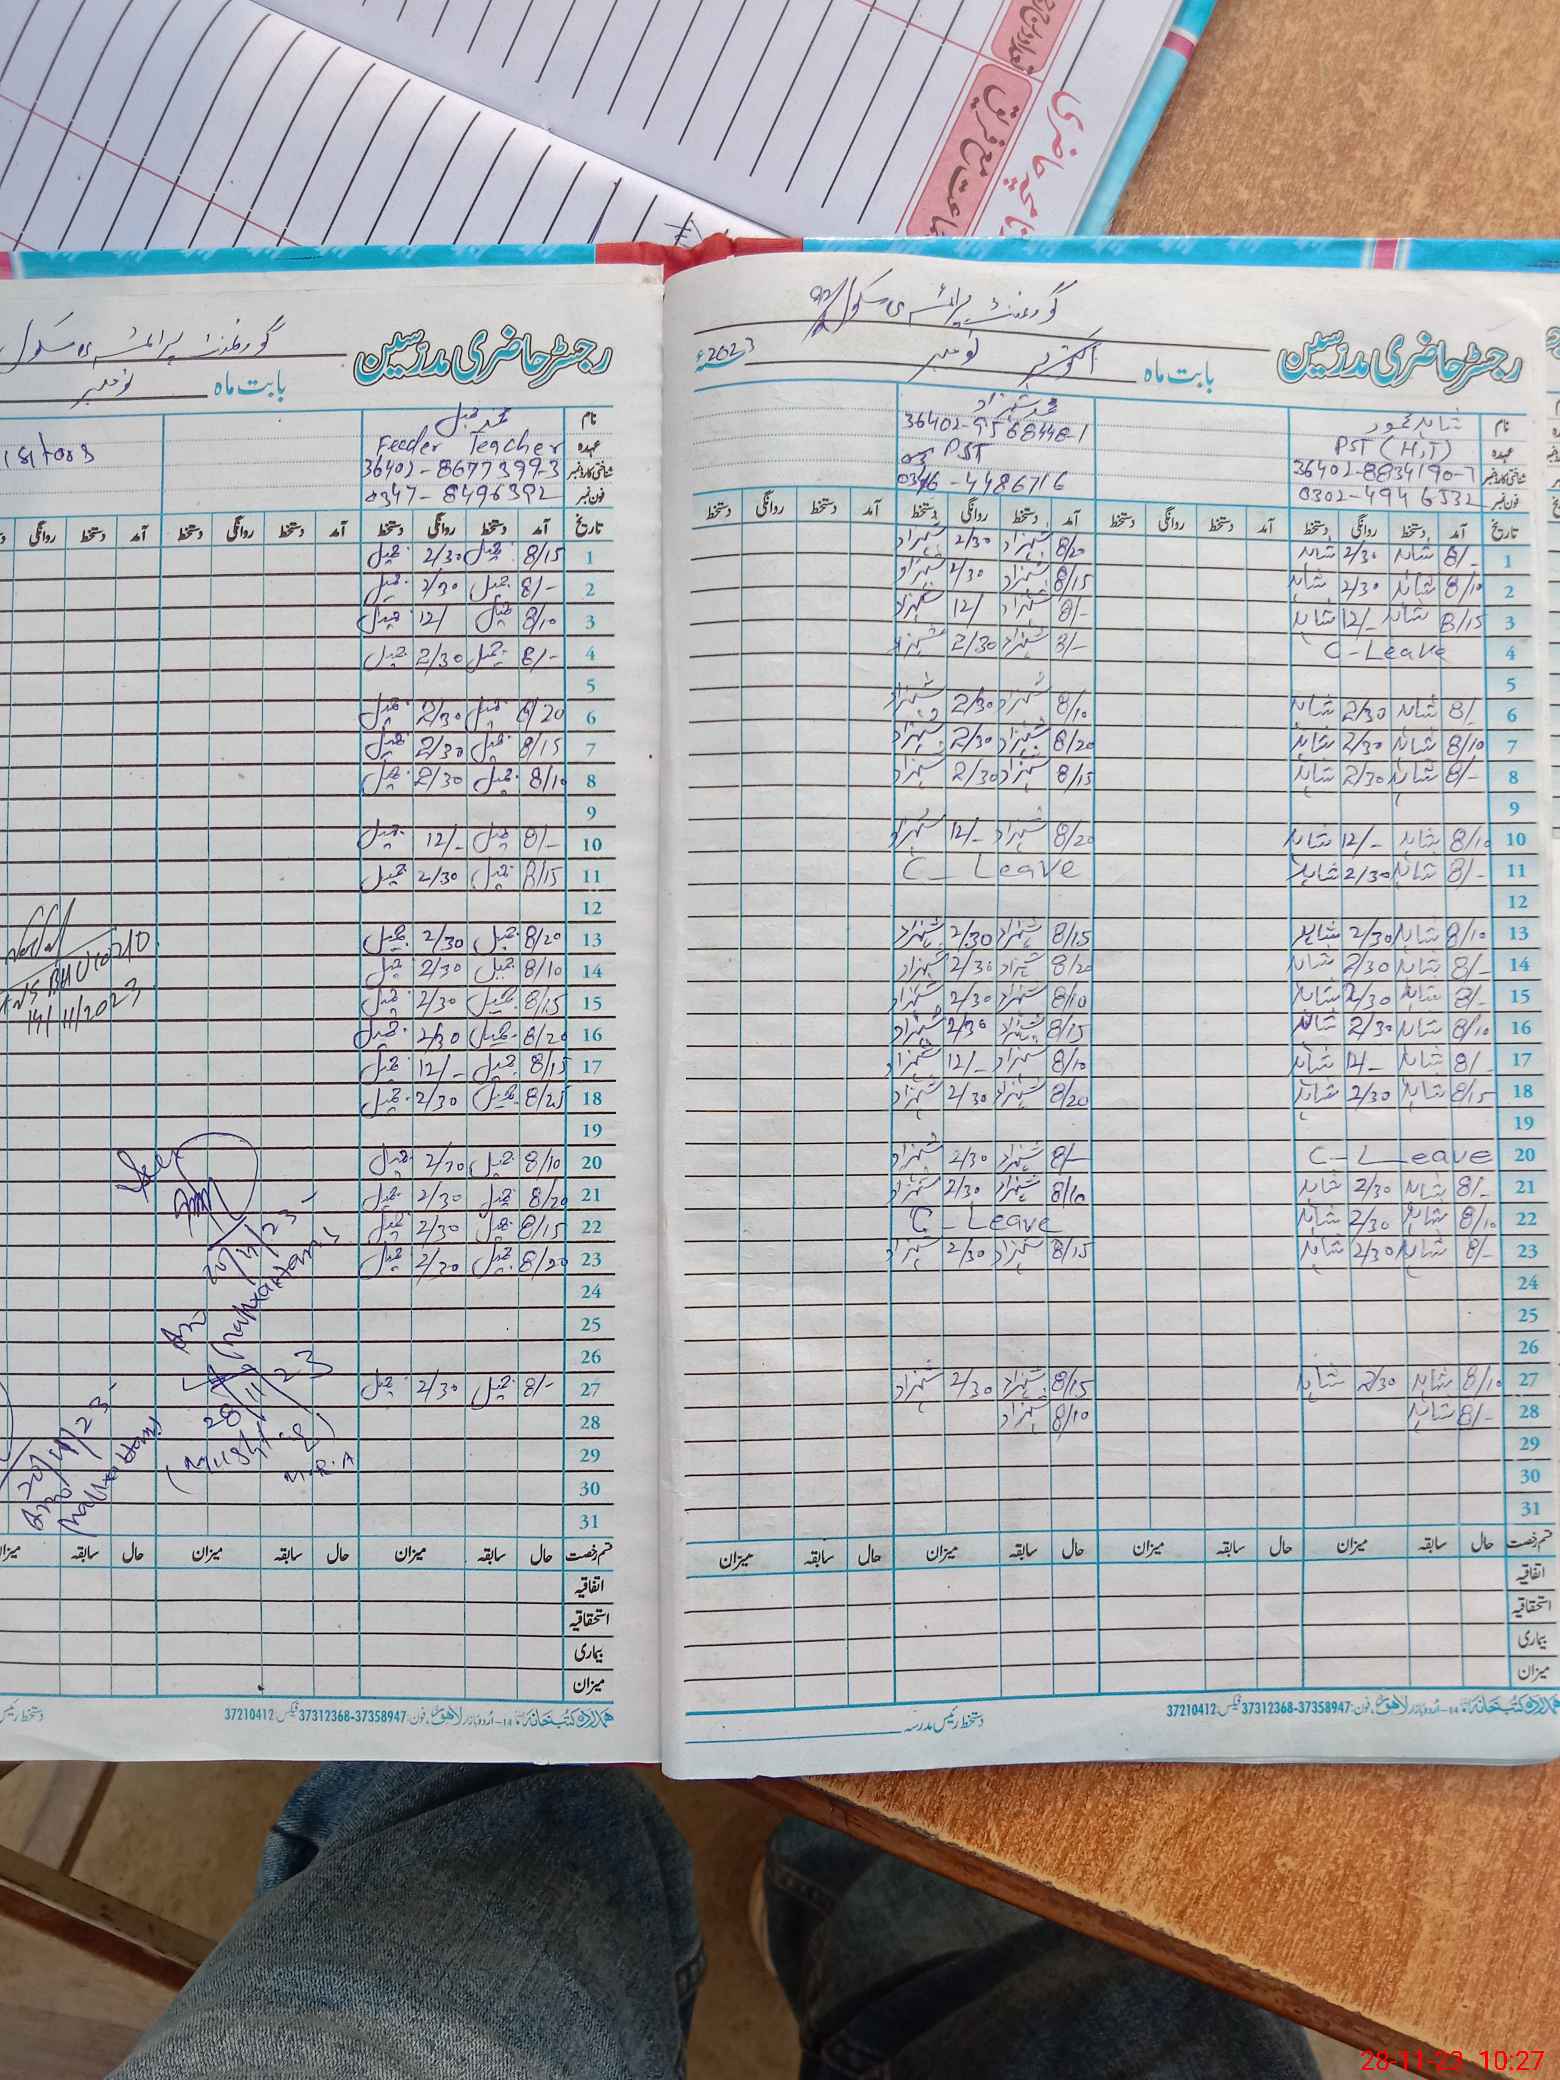 رجسٹر حاضری مدرسین
گورنمنٹ پرائمری سکول
بابت ماہ نومبر ء2023
نام شاہد محمود محمد شہزاد
عہدہ PST (H.T) PST
شناختی کارڈ نمبر 36402-8834190-7 36402-9568448-1
فون نمبر 0302-494 6532 0346-4486716
تاریخ آمد دستخط روانگی دستخط آمد دستخط روانگی دستخط آمد دستخط روانگی دستخط آمد دستخط روانگی دستخط
1 8/- شاہد 2/30 شاہد 8/20 شہزاد 2/30 شہزاد
2 8/10 شاہد 2/30 شاہد 8/15 شہزاد 2/30 شہزاد
3 8/15 شاہد 12/- شاہد 8/- شہزاد 12/ شہزاد
4 C-Leave 8/- شہزاد 2/30 شہزاد
5
6 8/- شاہد 2/30 شاہد 8/10 شہزاد 2/30 شہزاد
7 8/10 شاہد 2/30 شاہد 8/20 شہزاد 2/30 شہزاد
8 8/- شاہد 2/30 شاہد 8/15 شہزاد 2/30 شہزاد
9
10 8/10 شاہد 12/- شاہد 8/20 شہزاد 12/- شہزاد
11 8/- شاہد 2/30 شاہد C-Leave
12
13 8/10 شاہد 2/30 شاہد 8/15 شہزاد 2/30 شہزاد
14 8/- شاہد 2/30 شاہد 8/20 شہزاد 2/30 شہزاد
15 8/- شاہد 2/30 شاہد 8/10 شہزاد 2/30 شہزاد
16 8/10 شاہد 2/30 شاہد 8/15 شہزاد 2/30 شہزاد
17 8/- شاہد 12/- شاہد 8/10 شہزاد 12/- شہزاد
18 8/15 شاہد 2/30 شاہد 8/20 شہزاد 2/30 شہزاد
19
20 C-Leave 8/- شہزاد 2/30 شہزاد
21 8/- شاہد 2/30 شاہد 8/10 شہزاد 2/30 شہزاد
22 8/10 شاہد 2/30 شاہد C-Leave
23 8/- شاہد 2/30 شاہد 8/15 شہزاد 2/30 شہزاد
24
25
26
27 8/10 شاہد 2/30 شاہد 8/15 شہزاد 2/30 شہزاد
28 8/- شاہد 8/10 شہزاد
29
30
31
قسم رخصت حال سابقہ میزان حال سابقہ میزان حال سابقہ میزان حال سابقہ میزان
اتفاقیہ
استحقاقیہ
بیماری
میزان
14-اردو بازار لاہور، فون: 37358947-37312368 فیکس: 37210412
دستخط رئیس مدرسہ
رجسٹر حاضری مدرسین
گورنمنٹ پرائمری سکول
بابت ماہ نومبر
نام محمد جمیل
عہدہ Feeder Teacher
شناختی کارڈ نمبر 36402-8677399-3
فون نمبر 0347-8496392
تاریخ آمد دستخط روانگی دستخط آمد دستخط روانگی دستخط آمد دستخط روانگی
1 8/15 جمیل 2/30 جمیل
2 8/- جمیل 2/30 جمیل
3 8/10 جمیل 12/ جمیل
4 8/- جمیل 2/30 جمیل
5
6 8/20 جمیل 2/30 جمیل
7 8/15 جمیل 2/30 جمیل
8 8/10 جمیل 2/30 جمیل
9
10 8/- جمیل 12/- جمیل
11 8/15 جمیل 2/30 جمیل
12
13 8/20 جمیل 2/30 جمیل
14 8/10 جمیل 2/30 جمیل
15 8/15 جمیل 2/30 جمیل
16 8/20 جمیل 2/30 جمیل
17 8/15 جمیل 12/- جمیل
18 8/25 جمیل 2/30 جمیل
19
20 8/10 جمیل 2/30 جمیل
21 8/20 جمیل 2/30 جمیل
22 8/15 جمیل 2/30 جمیل
23 8/20 جمیل 2/30 جمیل
24
25
26
27 8/- جمیل 2/30 جمیل
28
29
30
31
14/11/2023
20/11/23
28/11/23
20/11/23
قسم رخصت حال سابقہ میزان حال سابقہ میزان حال سابقہ میزان
اتفاقیہ
استحقاقیہ
بیماری
میزان
14-اردو بازار لاہور، فون: 37358947-37312368 فیکس: 37210412
دستخط رئیس
28-11-23 10:27